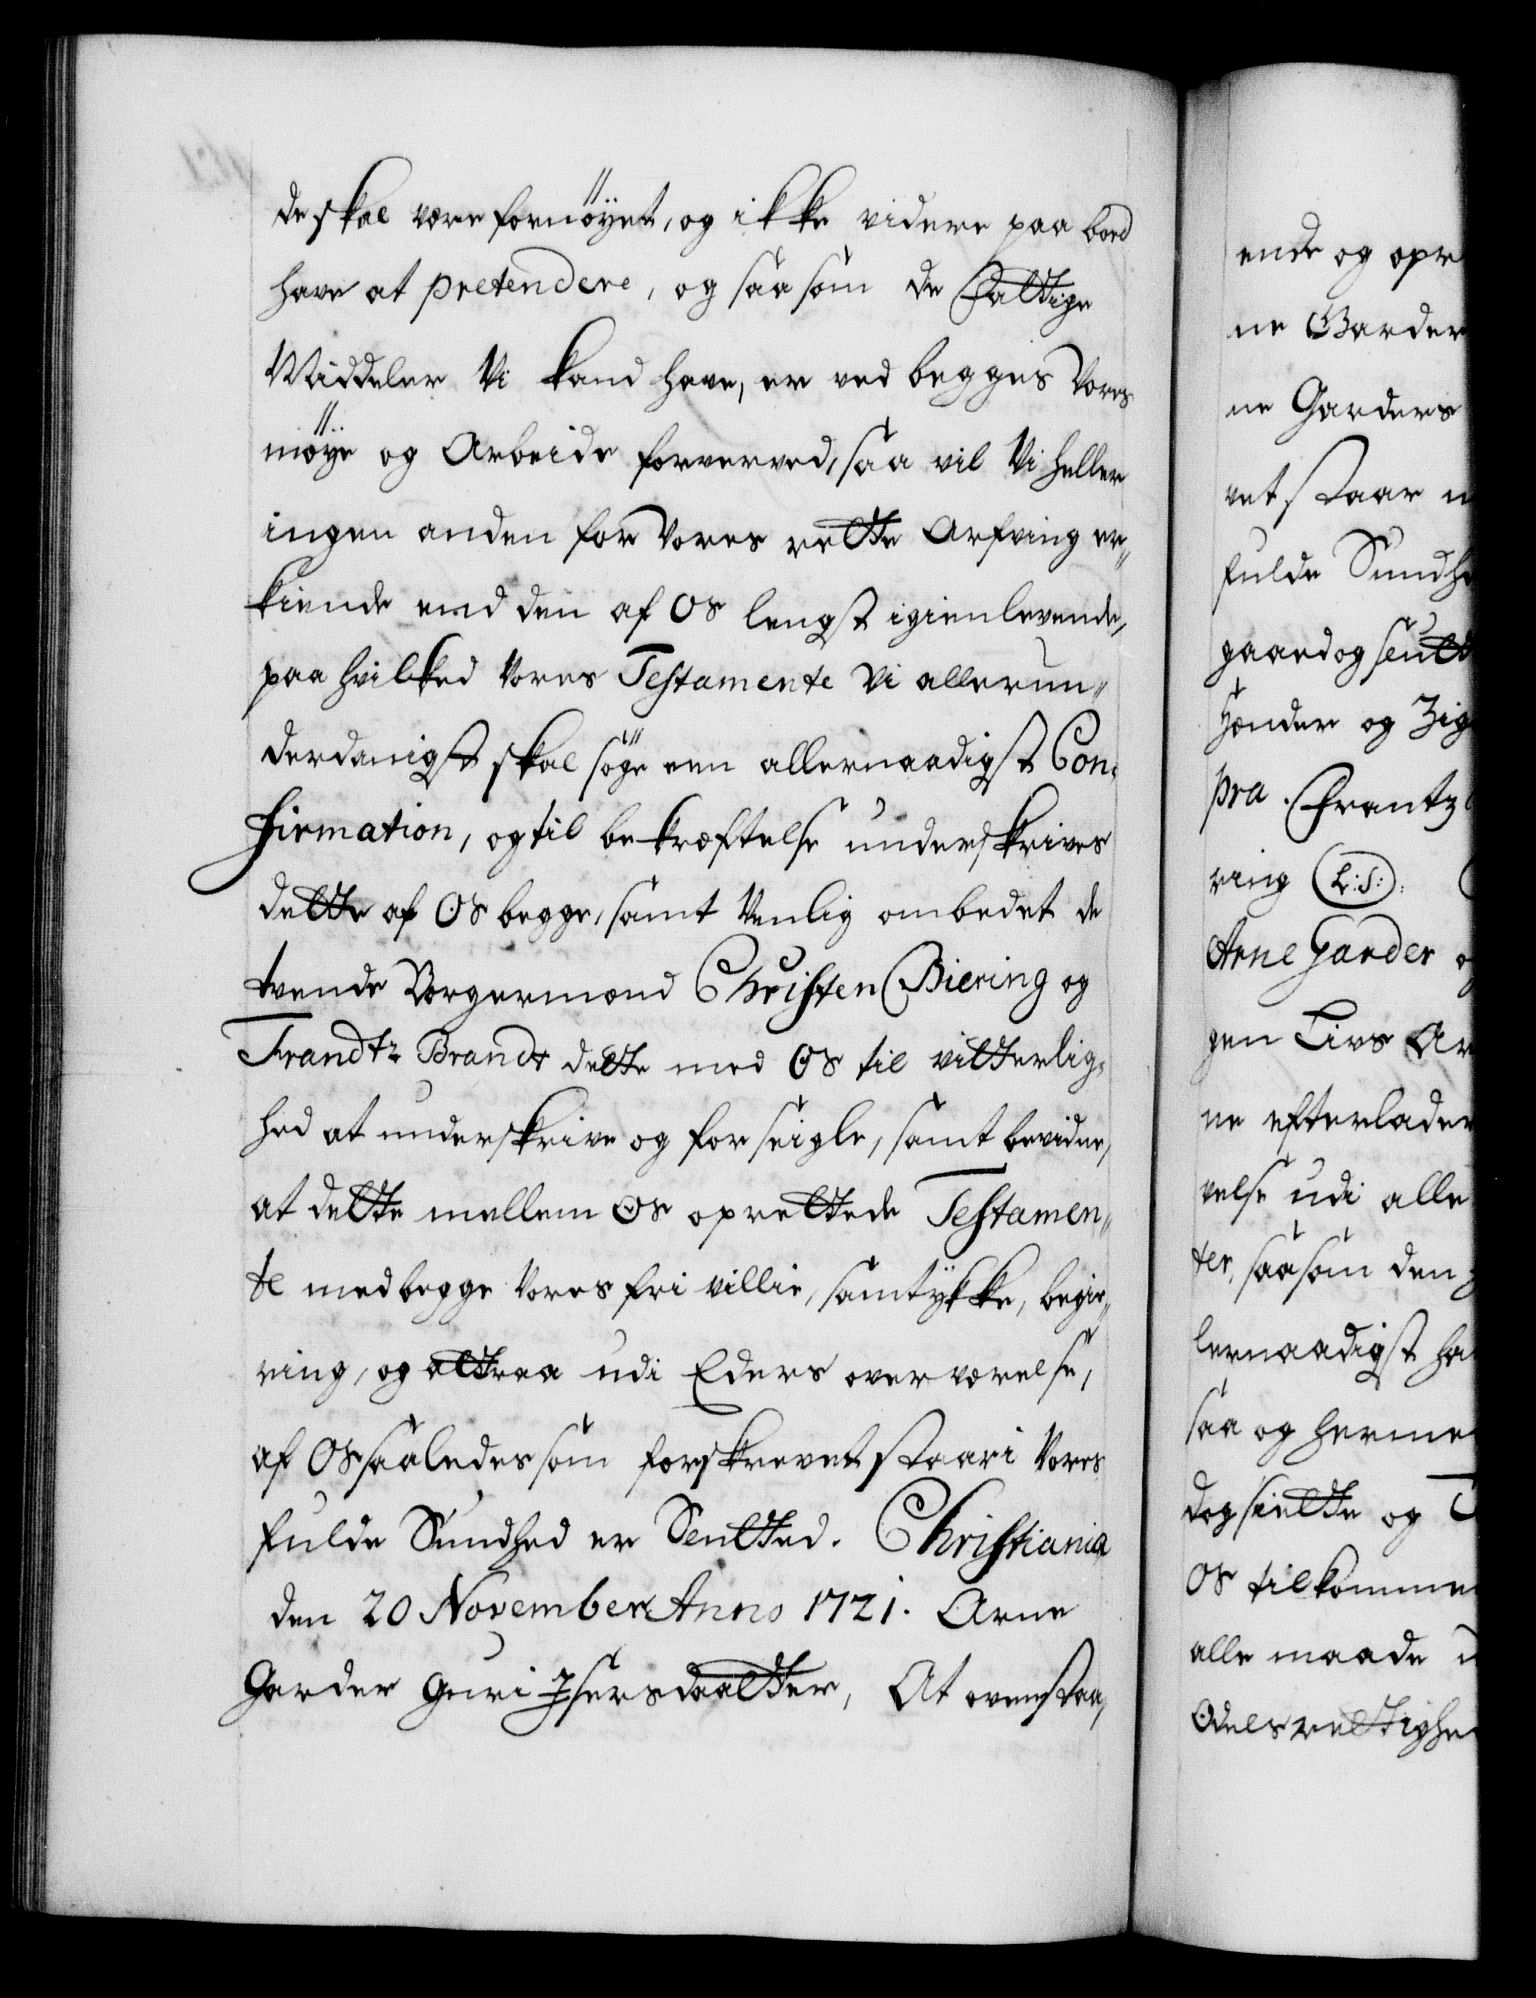 de skal være fornöyet, og ikke videre paa bord
have at pretendere, og saa som de Fattige
Middeler Vi kand have, er ved begges Vores
möye og Arbeide forverved, saa vil Vi heller
ingen anden for Vores rette Arfving er„
kiende end den af Os lengst igienlevende,
paa hvilked Vores Testamente Vi allerun„
derdanigst skal söge een allernaadigst Con„
firmation, og til bekræftelse underskrives
dette af Os begge, samt Venlig ombedet de
tvende Borgermænd Christen Biering og
Frandtz Brandt dette med Os til vitterlig„
hed at underskrive og forseigle, samt bevidne,
at dette mellem Os oprettede Testamen„
te med begge Vores fri villie, samtykke, begie„
ring, og attraa udi Eders overværelse,
af Os saaledes som forskrevet staar i Vores
fulde Sundhed er Slutted. Christiania
den 20 November Anno 1721. Arne
Garder Guri Ifversdaatter, At ovenstaa„
ende og opr
ne Garder
ne Garders
vet staar
fulde Sundh
gaard og
Hænder og Zig
pra. Frantz
ring (L:S:)
Arne Garder
gen Livs Ar
ne efterlader
velse udi alle
ter, saasom den
lernaadigst ha
saa og herme
dog sielte og
Os tilkomme
alle maade
Odelsrettighe